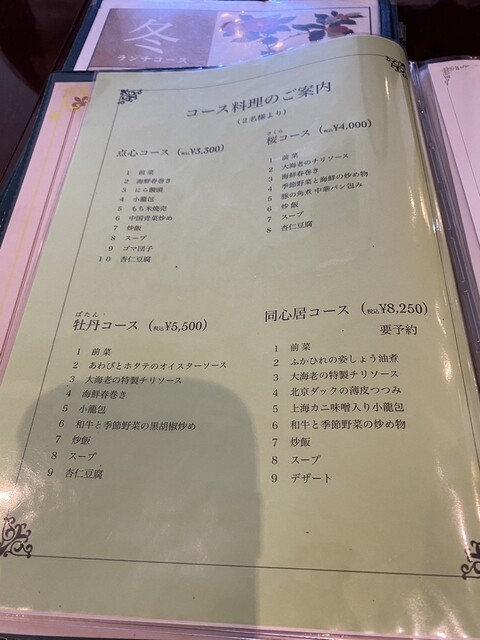 冬
ランチコース
コース料理のご案内
(2名様より)
点心コース (税込¥3,300)
1 前菜
2 海鮮春巻き
3 にら饅頭
4 小龍包
5 もち米焼売
6 中国青菜炒め
7 炒飯
8 スープ
9 ゴマ団子
10 杏仁豆腐
さくら
桜コース (税込¥4,000)
1 前菜
2 大海老のチリソース
3 海鮮春巻き
4 季節野菜と海鮮の炒め物
5 豚の角煮 中華パン包み
6 炒飯
7 スープ
8 杏仁豆腐
ぼたん
牡丹コース (税込¥5,500)
1 前菜
2 あわびとホタテのオイスターソース
3 大海老の特製チリソース
4 海鮮春巻き
5 小龍包
6 和牛と季節野菜の黒胡椒炒め
7 炒飯
8 スープ
9 杏仁豆腐
同心居コース (税込¥8,250)
要予約
1 前菜
2 ふかひれの姿しょう油煮
3 大海老の特製チリソース
4 北京ダックの薄皮つつみ
5 上海カニ味噌入り小龍包
6 和牛と季節野菜の炒め物
7 炒飯
8 スープ
9 デザート